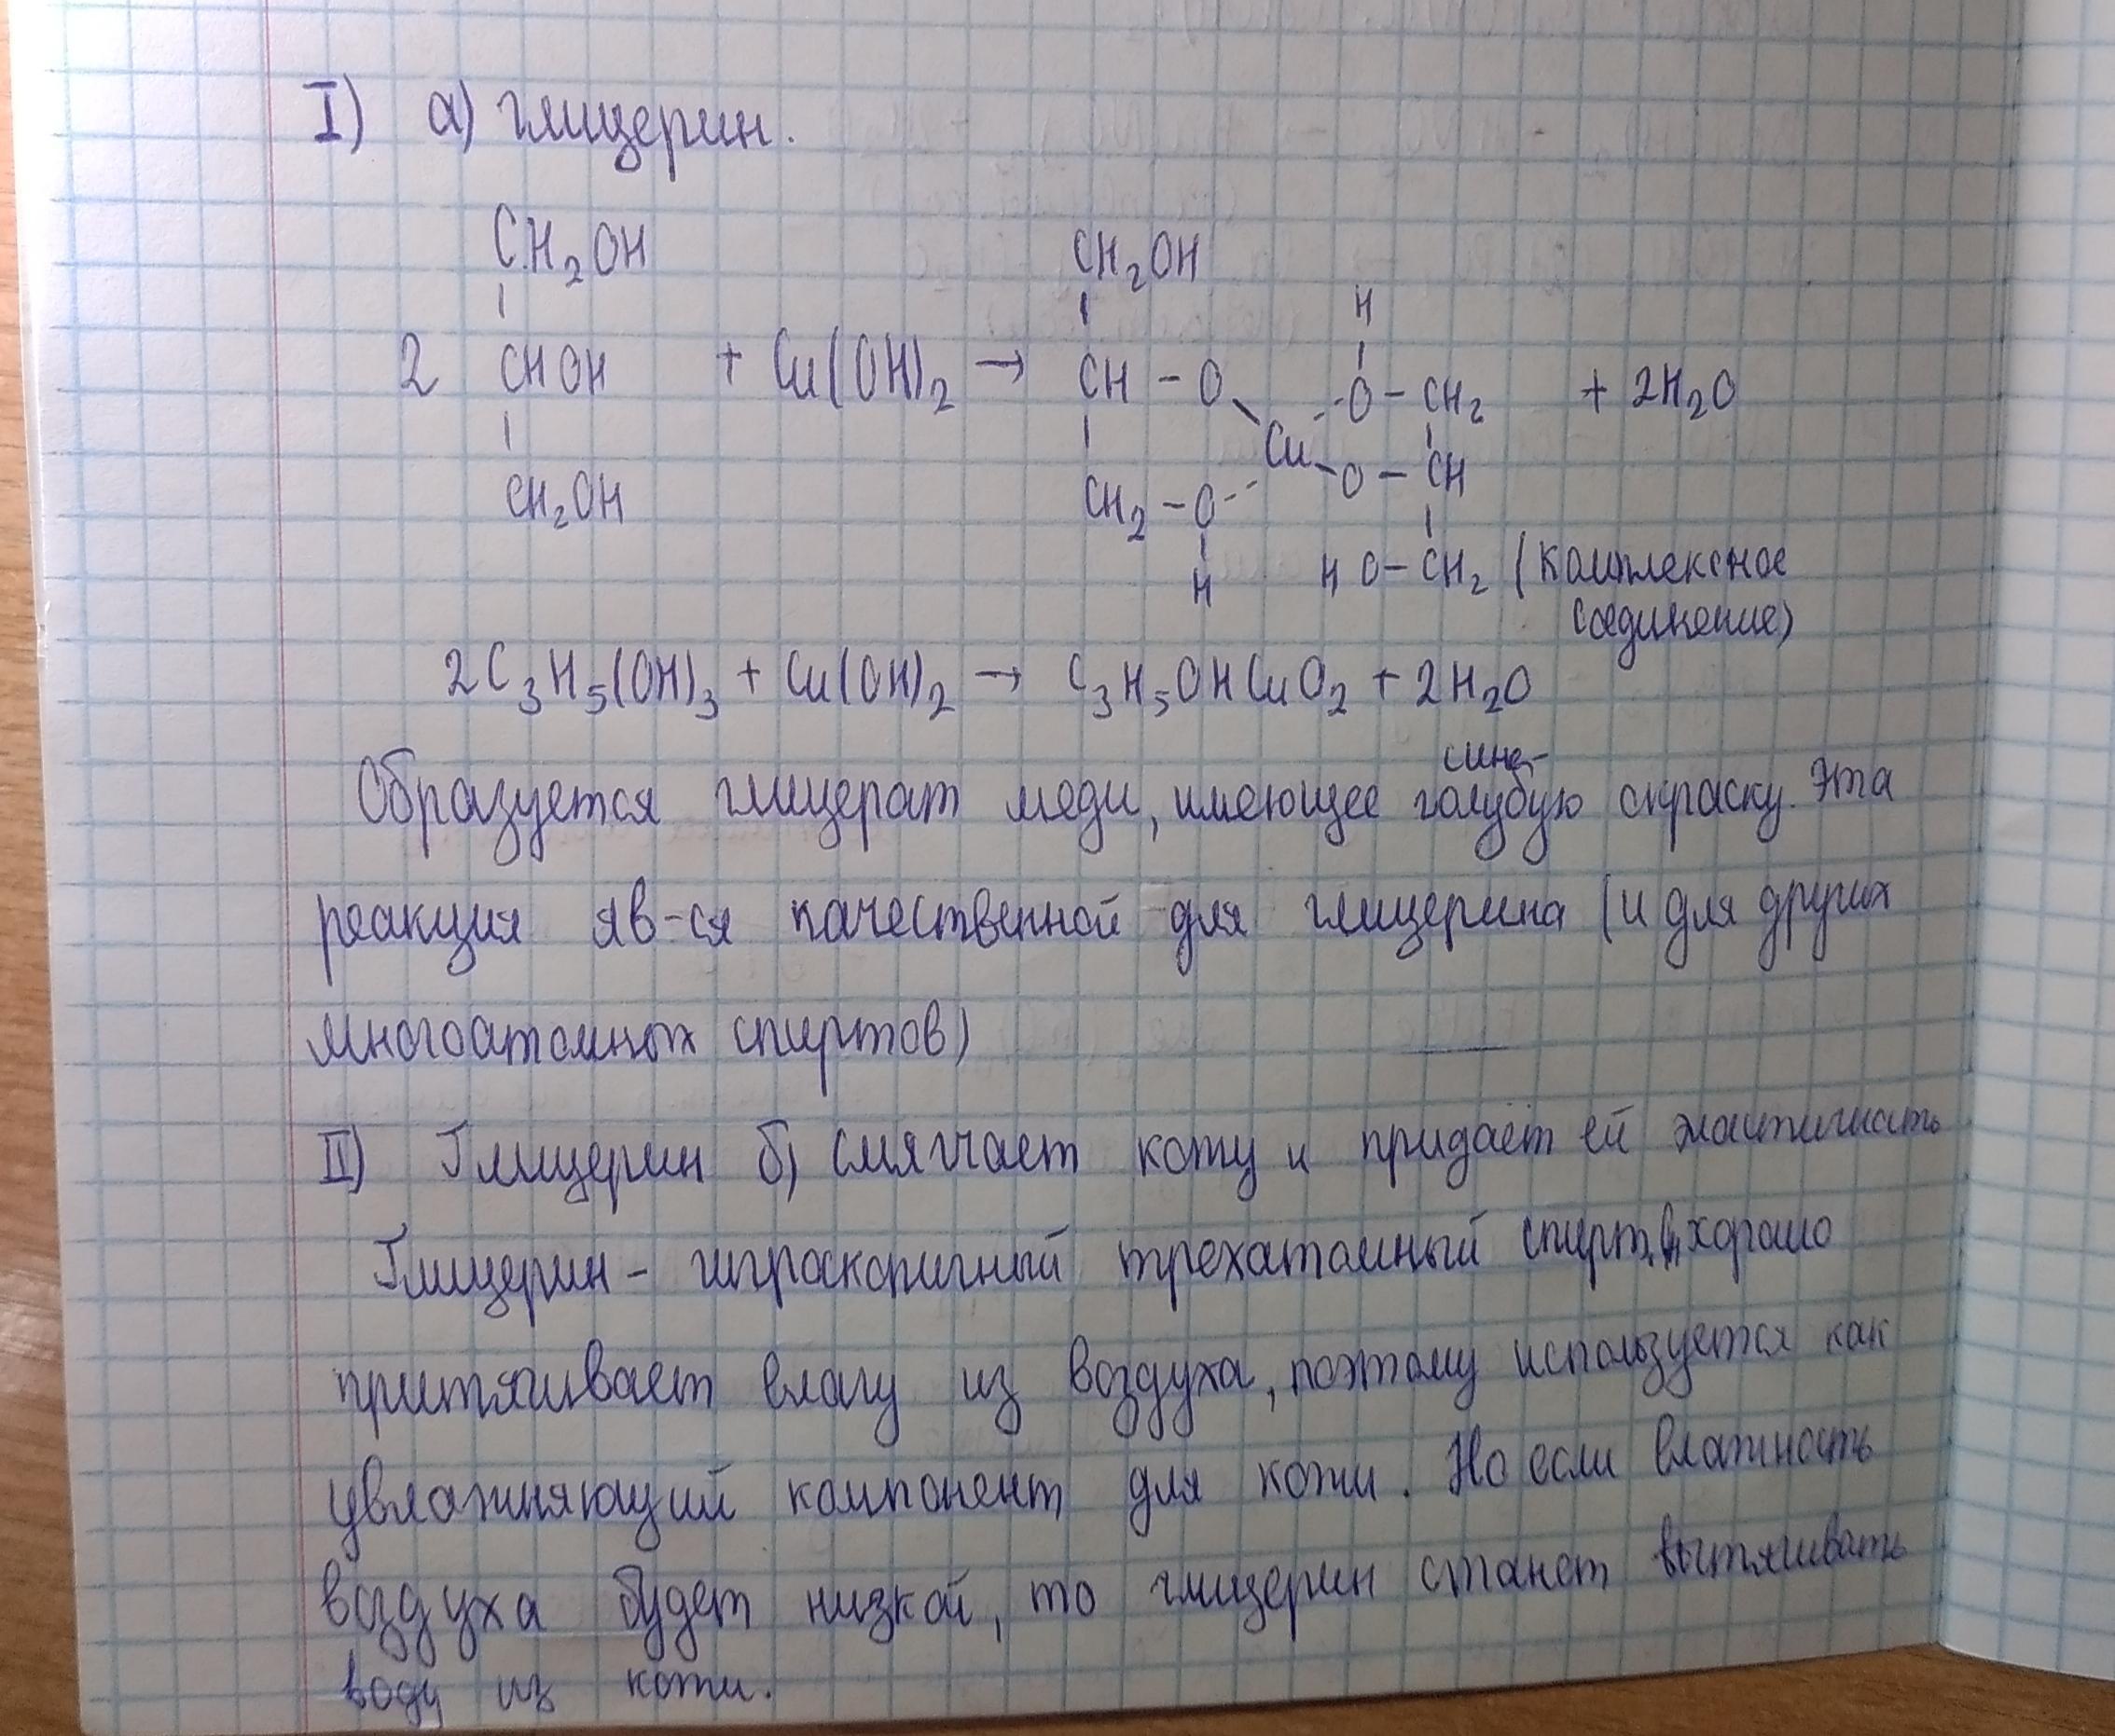 I) а) глицерин.
CH₂OH CH₂OH
H
2 CHOH + Cu(OH)₂ → CH - O O - CH₂ + 2H₂O
Cu - O - CH
CH₂OH CH₂ - O
H HO - CH₂ (комплексное
соединение)
2C₃H₅(OH)₃ + Cu(OH)₂ → C₃H₅OHCuO₂ + 2H₂O
сине-
Образуется глицерат меди, имеющее голубую окраску. Эта
реакция яв-ся качественной для глицерина (и для других
многоатомных спиртов)
II) Глицерин б) смягчает кожу и придаёт ей эластичность
Глицерин - гигроскопичный трехатомный спирт, хорошо
притягивает влагу из воздуха, поэтому используется как
увлажняющий компонент для кожи. Но если влажность
воздуха будет низкой, то глицерин станет вытягивать
воду из кожи.